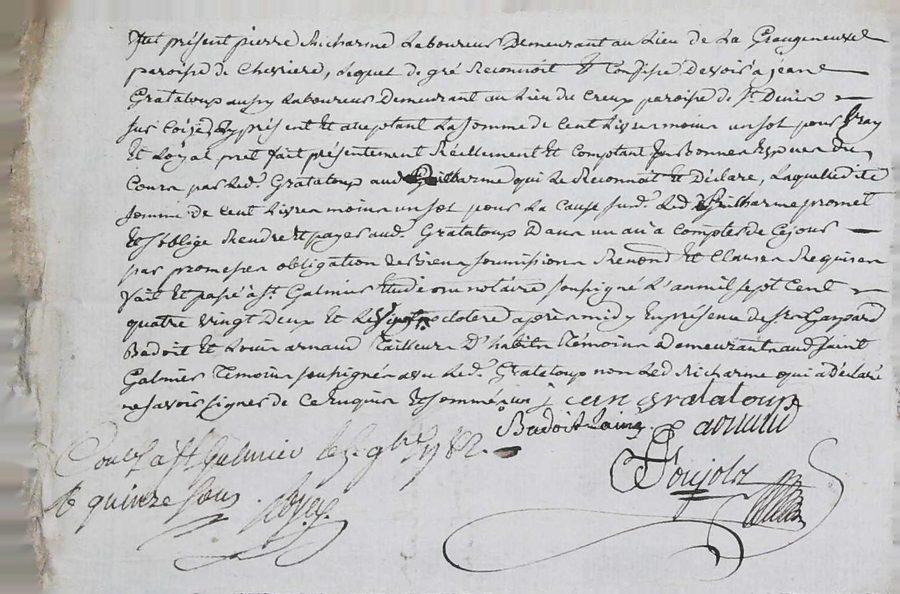 fut présent pierre Richarme Laboureur Demeurant au Lieu de La Grangeneuve
paroisse de Chevriere, Lequel de gré Reconnoit & Confesse Devoir a jean
Grataloup aussy Laboureur Demeurant au Lieu du Creux paroisse de St. Denis
sur Coize, Cy présent Et acceptant La somme de Cent Livres moins un sol pour Vray
Et Loyal pret fait présentement Réellement Et Comptant En Bonnes Especes du
Cours par Led. Grataloup aud Richarme qui Le Reconnoit Et Déclare, Laquelle dite
somme de Cent Livres moins un sol pour La Cause susd. Led Richarme promet
Et s'oblige Rendre Et payer aud. Grataloup Dans un an a Compter de Ce jour
par promesses obligation de Biens soumissions Renond. Et Clauses Requises
fait Et passé a St. Galmier Etude du notaire soussigné L'an mil sept Cent
quatre vingt Deux Et Le Vingt octobre après midy En présence de Sr. Gaspard
Badoit Et Louis arnaud Tailleurs D'habits Témoins Demeurant aud Saint
Galmier Temoins soussignés avec Led. Grataloup non Led Richarme qui a Déclaré
ne savoir signer de Ce Enquis Et sommé jean grataloup
Badoit Lainé arnaud
Conlé a St Galmier le 9bre 1782.
R quinze sous
Poujolz